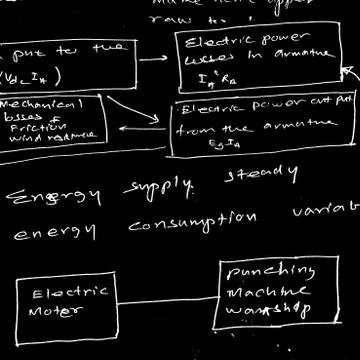 raw to
put to the
(Vdc IA)
Electric power
losses in armature
IA² RA
Mechanical
losses of
Friction
wind resistance
Electric power out put
from the armature
Eg IA
Energy supply. steady
energy consumption variab
Electric
Motor
punching
Machine